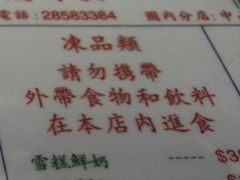 電話：28583384 國內分店：中
凍品類
請勿携帶
外帶食物和飲料
在本店內進食
雪糕鮮奶 $3